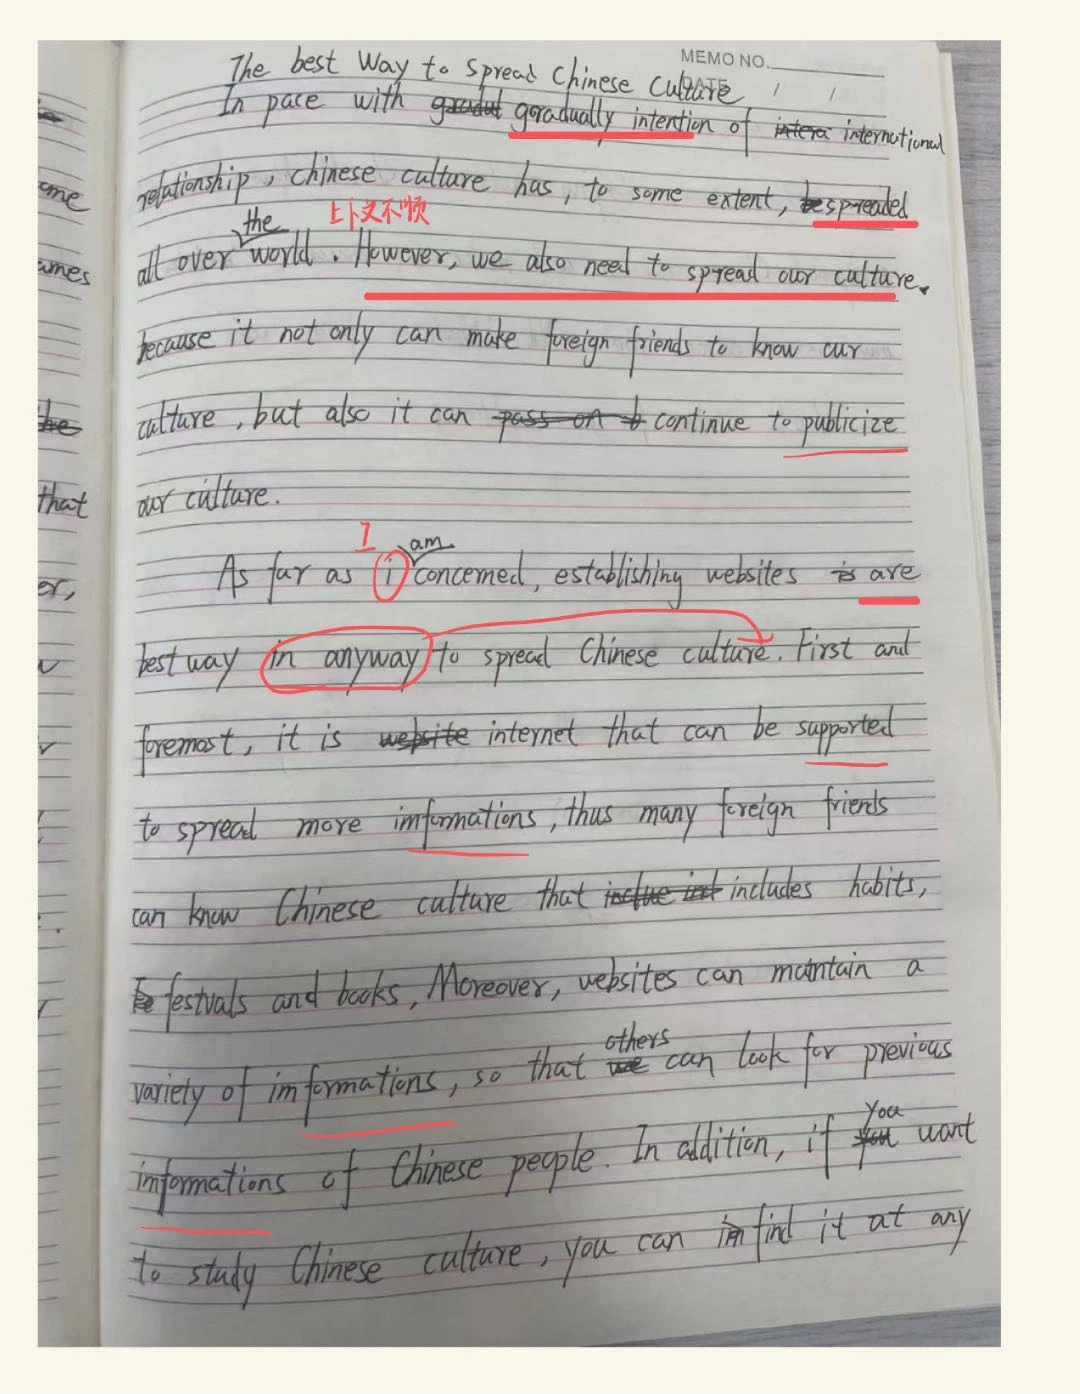 MEMO NO.
The best Way to spread Chinese Culture
DATE / /
In pace with gradual goradually intention of intera international
relationship, chinese culture has, to some extent, be spreaded
the
上下文不顺
all over world. However, we also need to spread our culture.
because it not only can make foreign friends to know our
culture, but also it can pass on to continue to publicize
our culture.
I
am
As far as i concerned, establishing websites is are
best way in anyway to spread Chinese culture. First and
foremost, it is website internet that can be supported
to spread more imformations, thus many foreign friends
can know Chinese culture that includes habits,
festivals and books, Moreover, websites can maintain a
others
variety of imformations, so that we can look for previous
you
imformations of Chinese people. In addition, if you want
to study Chinese culture, you can in find it at any
ome
ames
he
that
er,